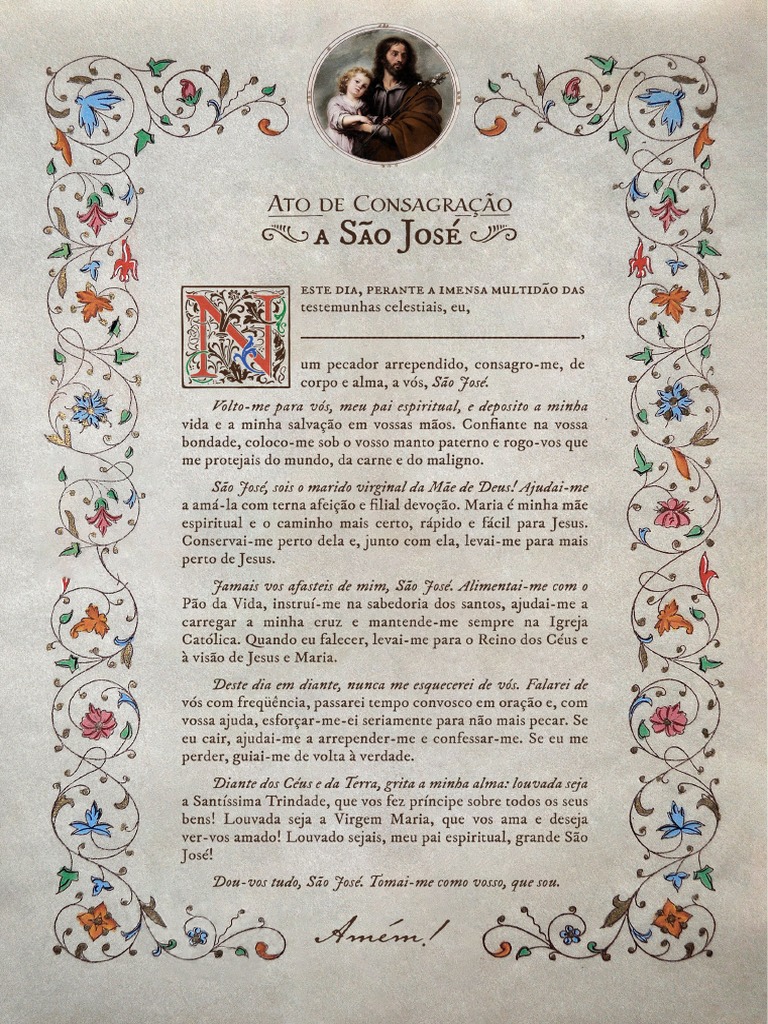 Ato de Consagração
a São José
Neste dia, perante a imensa multidão das
testemunhas celestiais, eu,
________________________________,
um pecador arrependido, consagro-me, de
corpo e alma, a vós, São José.
Volto-me para vós, meu pai espiritual, e deposito a minha
vida e a minha salvação em vossas mãos. Confiante na vossa
bondade, coloco-me sob o vosso manto paterno e rogo-vos que
me protejais do mundo, da carne e do maligno.
São José, sois o marido virginal da Mãe de Deus! Ajudai-me
a amá-la com terna afeição e filial devoção. Maria é minha mãe
espiritual e o caminho mais certo, rápido e fácil para Jesus.
Conservai-me perto dela e, junto com ela, levai-me para mais
perto de Jesus.
Jamais vos afasteis de mim, São José. Alimentai-me com o
Pão da Vida, instruí-me na sabedoria dos santos, ajudai-me a
carregar a minha cruz e mantende-me sempre na Igreja
Católica. Quando eu falecer, levai-me para o Reino dos Céus e
à visão de Jesus e Maria.
Deste dia em diante, nunca me esquecerei de vós. Falarei de
vós com freqüência, passarei tempo convosco em oração e, com
vossa ajuda, esforçar-me-ei seriamente para não mais pecar. Se
eu cair, ajudai-me a arrepender-me e confessar-me. Se eu me
perder, guiai-me de volta à verdade.
Diante dos Céus e da Terra, grita a minha alma: louvada seja
a Santíssima Trindade, que vos fez príncipe sobre todos os seus
bens! Louvada seja a Virgem Maria, que vos ama e deseja
ver-vos amado! Louvado sejais, meu pai espiritual, grande São
José!
Dou-vos tudo, São José. Tomai-me como vosso, que sou.
Amém!